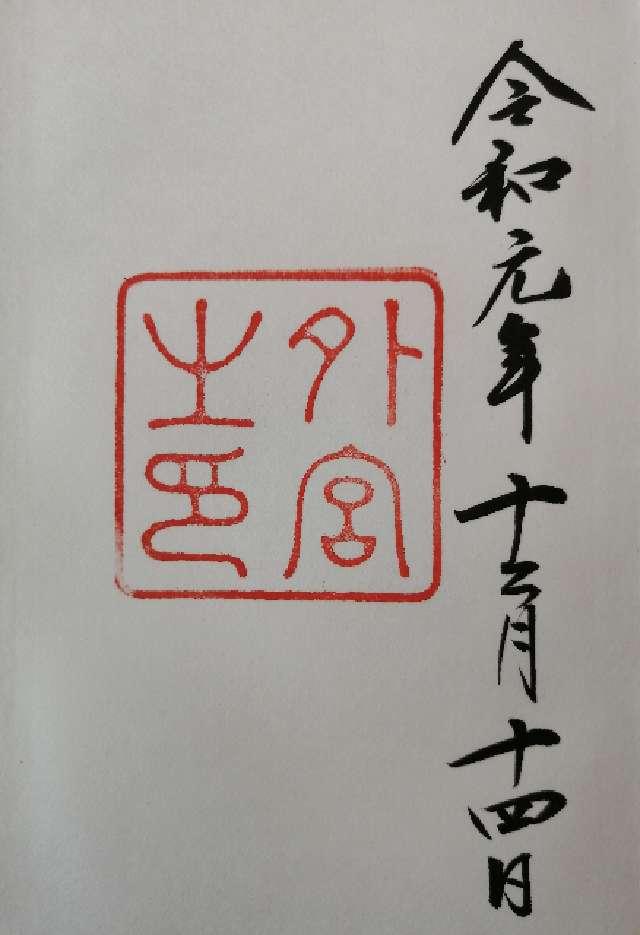 令和元年十二月十四日
外宮
之印